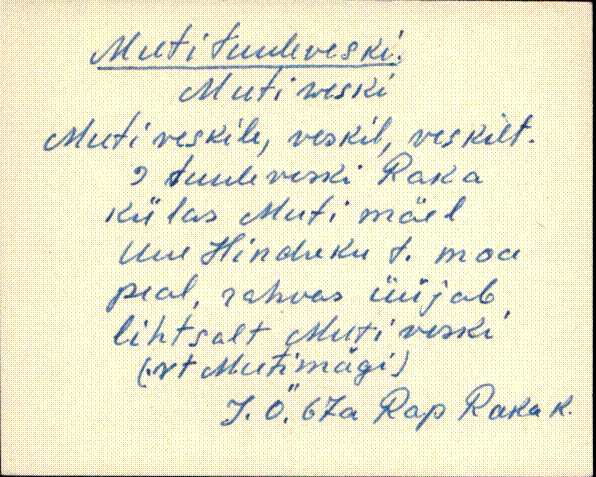 Muti tuuleveski.
Muti veski
Muti veskile, veskil, veskilt.
tuuleveski Raka
külas Muti mäel
Uue Hindreku t. maa
peal, rahvas üüjab
lihtsalt Muti veski
(vt Mutimägi)
J. Ö. 67a Rap Raka k.